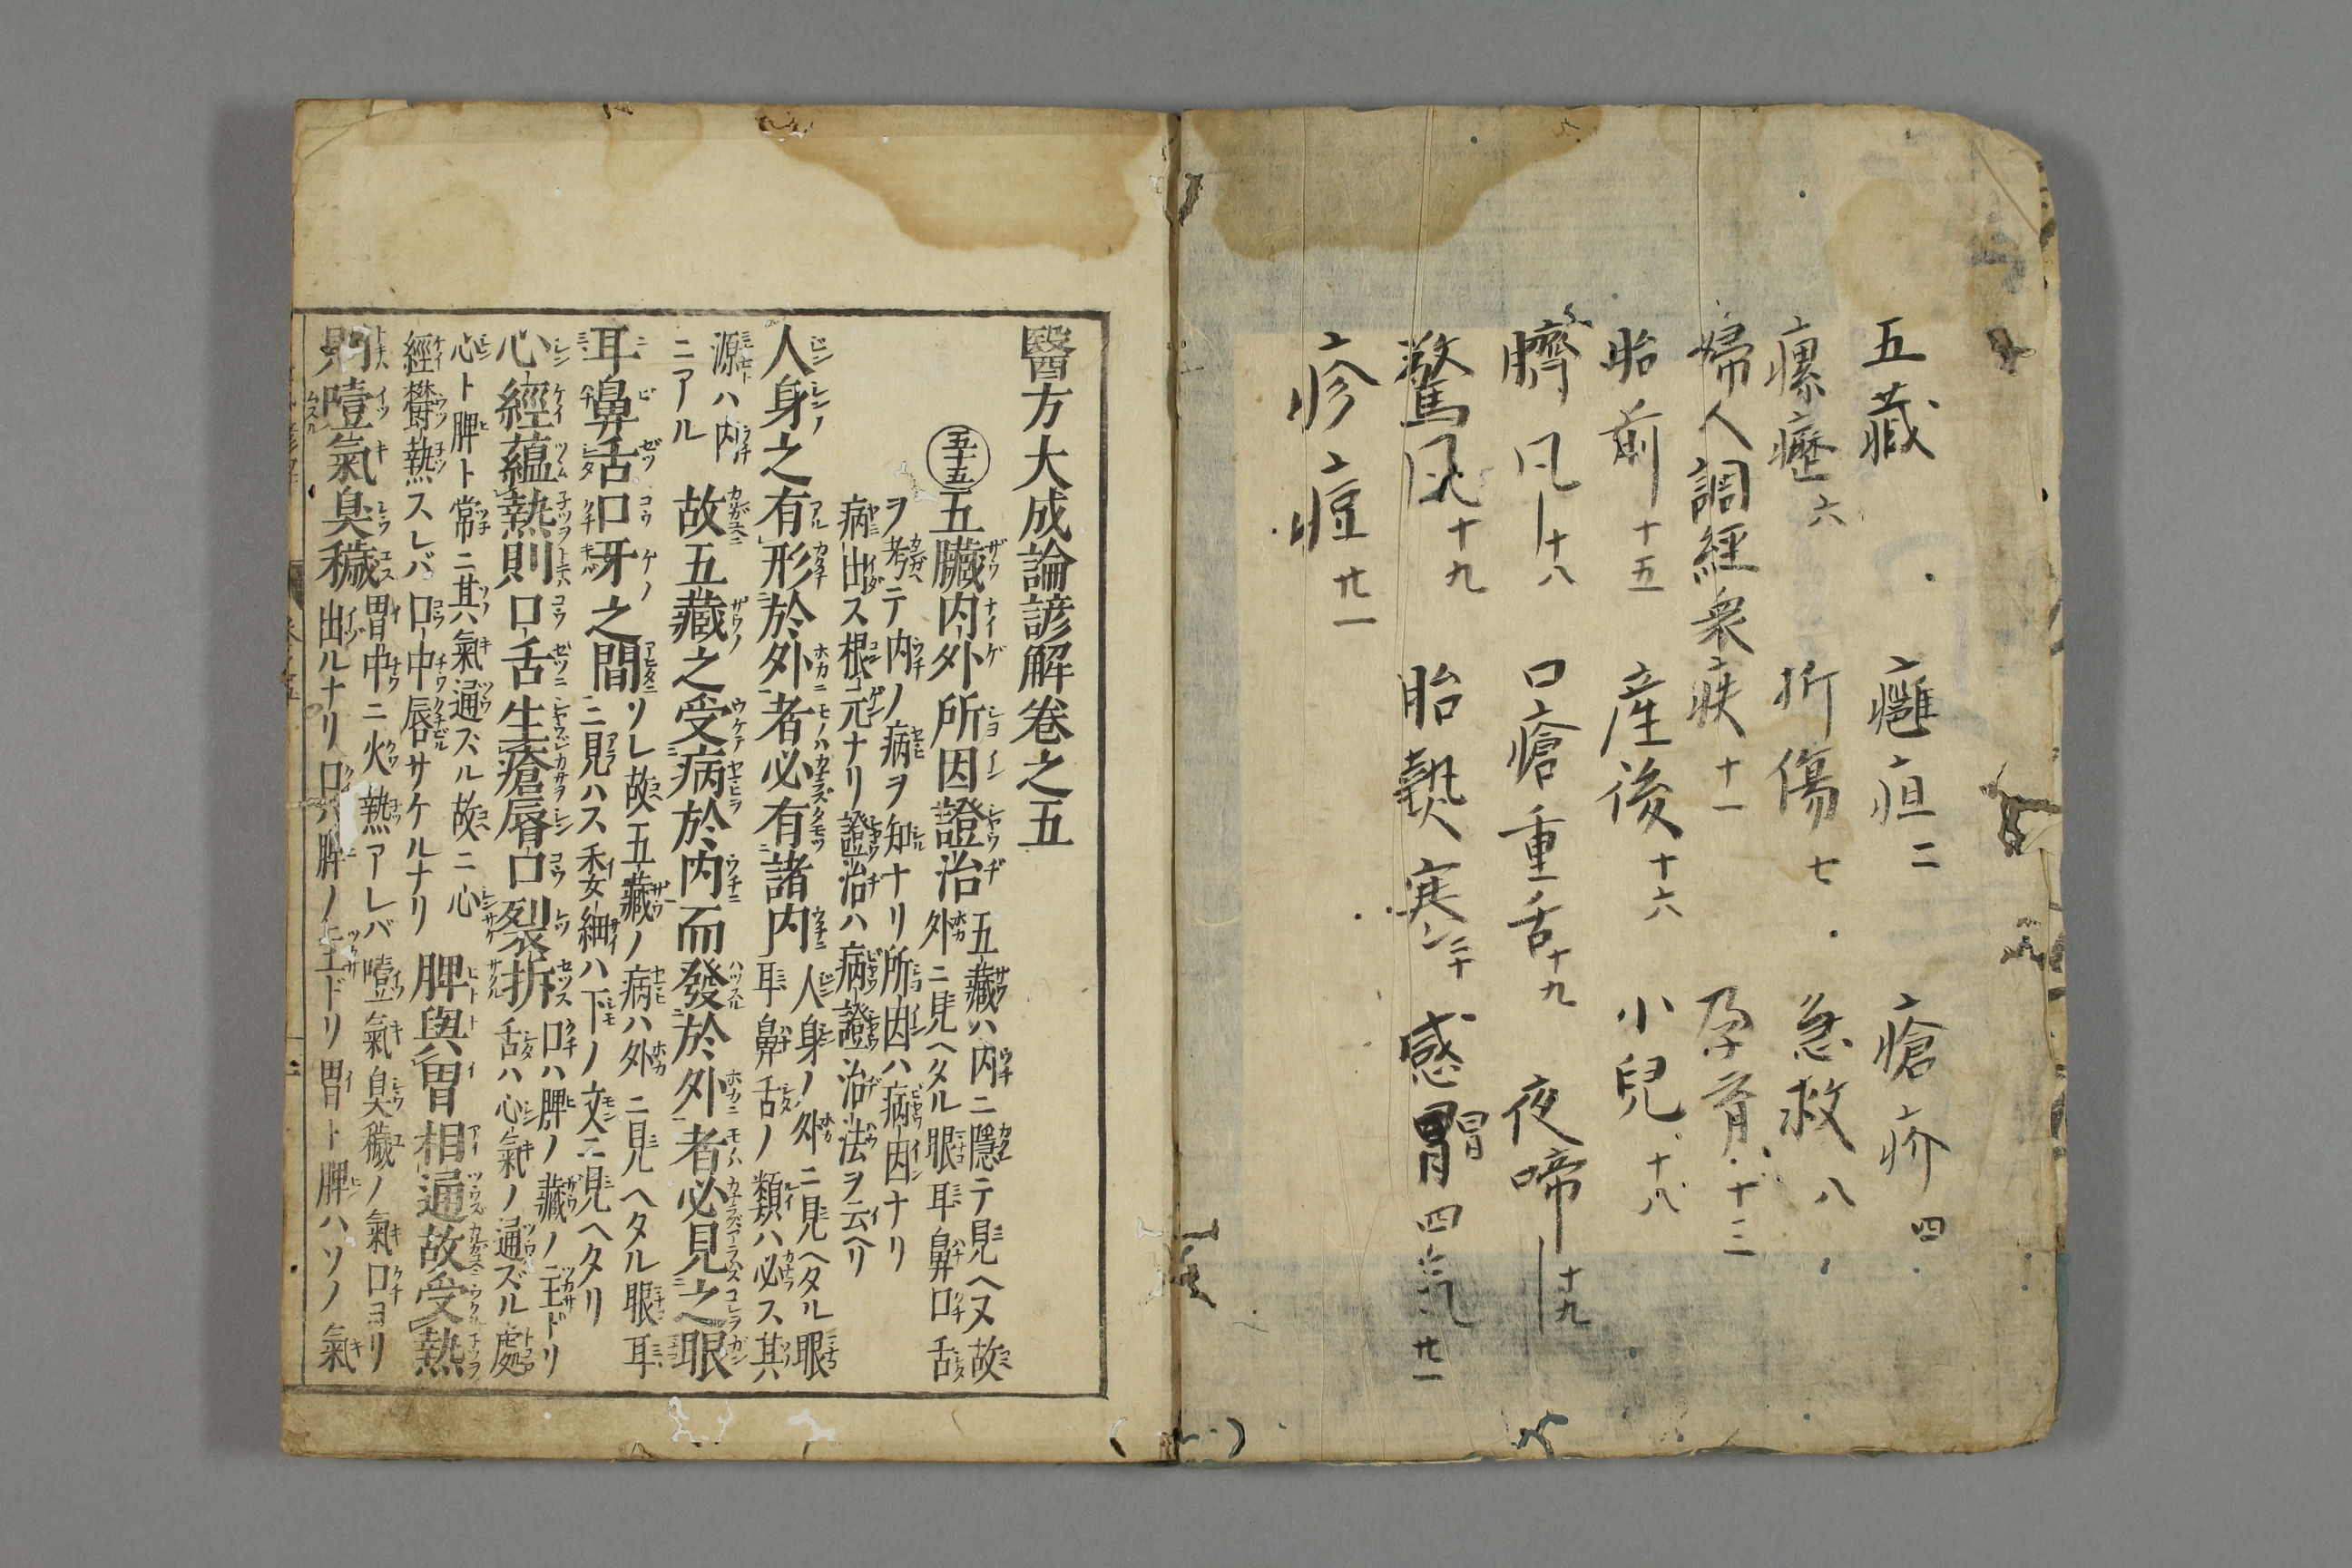 五藏 癰疽二 瘡疥四
瘰癧六 折傷七 急救八
婦人調經衆疾十一 孕育十三
胎前十五 産後十六 小兒十八
臍風十八 口瘡重舌十九 夜啼十九
驚風十九 胎熱寒二十 感冒四氣廿一
疹痘廿一
醫方大成論諺解卷之五
五十五 五臟内外所因證治 五藏ハ内ニ隱テ見ヘヌ故
外ニ見ヘタル眼耳鼻口舌
ヲ考テ内ノ病ヲ知ナリ所因ハ病因ナリ
病出ス根元ナリ證治ハ病證治法ヲ云ヘリ
人身之有形於外者必有諸内 人身ノ外ニ見ヘタル眼
耳鼻舌ノ類ハ必ス其
源ハ内
ニアル 故五藏之受病於内而發於外者必見之眼
耳鼻舌口牙之間 ソレ故五藏ノ病ハ外ニ見ヘタル眼耳
ニ見ハス委細ハ下ノ文ニ見ヘタリ
心經蘊熱則口舌生瘡唇口裂拆 口ハ脾ノ藏ノ主ドリ
舌ハ心氣ノ通ズル處
心ト脾ト常ニ其氣通ズル故ニ心
經欝熱スレバ口中唇サケルナリ 脾與胃相通故受熱
則噎氣臭穢 胃中ニ火熱アレバ噎氣臭穢ノ氣口ヨリ
出ルナリ口ハ脾ノ主ドリ胃ト脾ハソノ氣